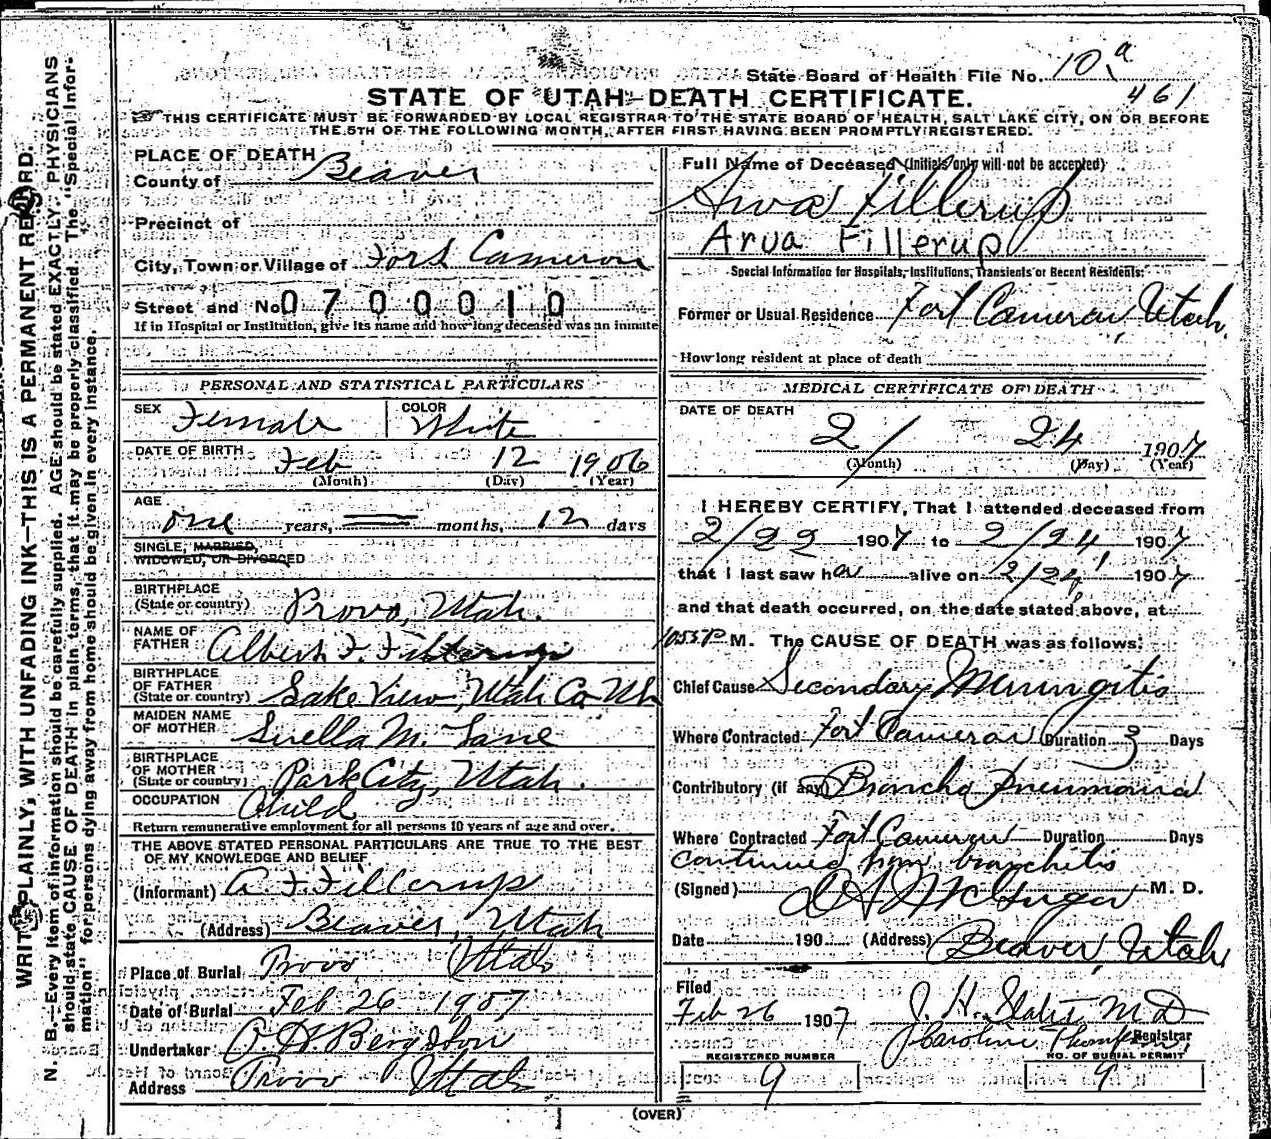 State Board of Health File No. 10 a
461
STATE OF UTAH—DEATH CERTIFICATE.
THIS CERTIFICATE MUST BE FORWARDED BY LOCAL REGISTRAR TO THE STATE BOARD OF HEALTH, SALT LAKE CITY, ON OR BEFORE
THE 5TH OF THE FOLLOWING MONTH, AFTER FIRST HAVING BEEN PROMPTLY REGISTERED.
WRITE PLAINLY, WITH UNFADING INK—THIS IS A PERMANENT RECORD.
N. B.—Every item of information should be carefully supplied. AGE should be stated EXACTLY. PHYSICIANS
should state CAUSE OF DEATH in plain terms, that it may be properly classified. The "Special Infor-
mation" for persons dying away from home should be given in every instance.
PLACE OF DEATH
County of Beaver
Precinct of
City, Town or Village of Fort Cameron
Street and No. 0700010
If in Hospital or Institution, give its name and how long deceased was an inmate
PERSONAL AND STATISTICAL PARTICULARS
SEX Female COLOR White
DATE OF BIRTH Feb 12 1906
(Month) (Day) (Year)
AGE one years, months, 12 days
SINGLE, MARRIED,
WIDOWED, OR DIVORCED
BIRTHPLACE
(State or country) Provo, Utah.
NAME OF
FATHER Albert F. Fillerup
BIRTHPLACE
OF FATHER
(State or country) Lake View, Utah Co. Uth
MAIDEN NAME
OF MOTHER Luella M. Lane
BIRTHPLACE
OF MOTHER
(State or country) Park City, Utah.
OCCUPATION Child
Return remunerative employment for all persons 10 years of age and over.
THE ABOVE STATED PERSONAL PARTICULARS ARE TRUE TO THE BEST
OF MY KNOWLEDGE AND BELIEF
(Informant) A F Fillerup
(Address) Beaver, Utah
Place of Burial Provo Utah
Date of Burial Feb 26 1907
Undertaker
Address Provo Utah
Full Name of Deceased (Initials only will not be accepted)
Arva Fillerup
Arva Fillerup
Special Information for Hospitals, Institutions, Transients or Recent Residents:
Former or Usual Residence Fort Cameron, Utah.
How long resident at place of death
MEDICAL CERTIFICATE OF DEATH
DATE OF DEATH
2/ 24 1907
(Month) (Day) (Year)
I HEREBY CERTIFY, That I attended deceased from
2/22 1907 to 2/24, 1907
that I last saw her alive on 2/24, 1907
and that death occurred, on the date stated above, at
M. The CAUSE OF DEATH was as follows:
Chief Cause Secondary Meningitis
Where Contracted Fort Cameron Duration 3 Days
Contributory (if any) Broncho Pneumonia
Where Contracted Fort Cameron Duration Days
continued from bronchitis
(Signed) M. D.
Date 190 (Address) Beaver, Utah
Filed
Feb 26 1907 J. H. M D
Caroline Registrar
REGISTERED NUMBER
9
NO. OF BURIAL PERMIT
9
(OVER)